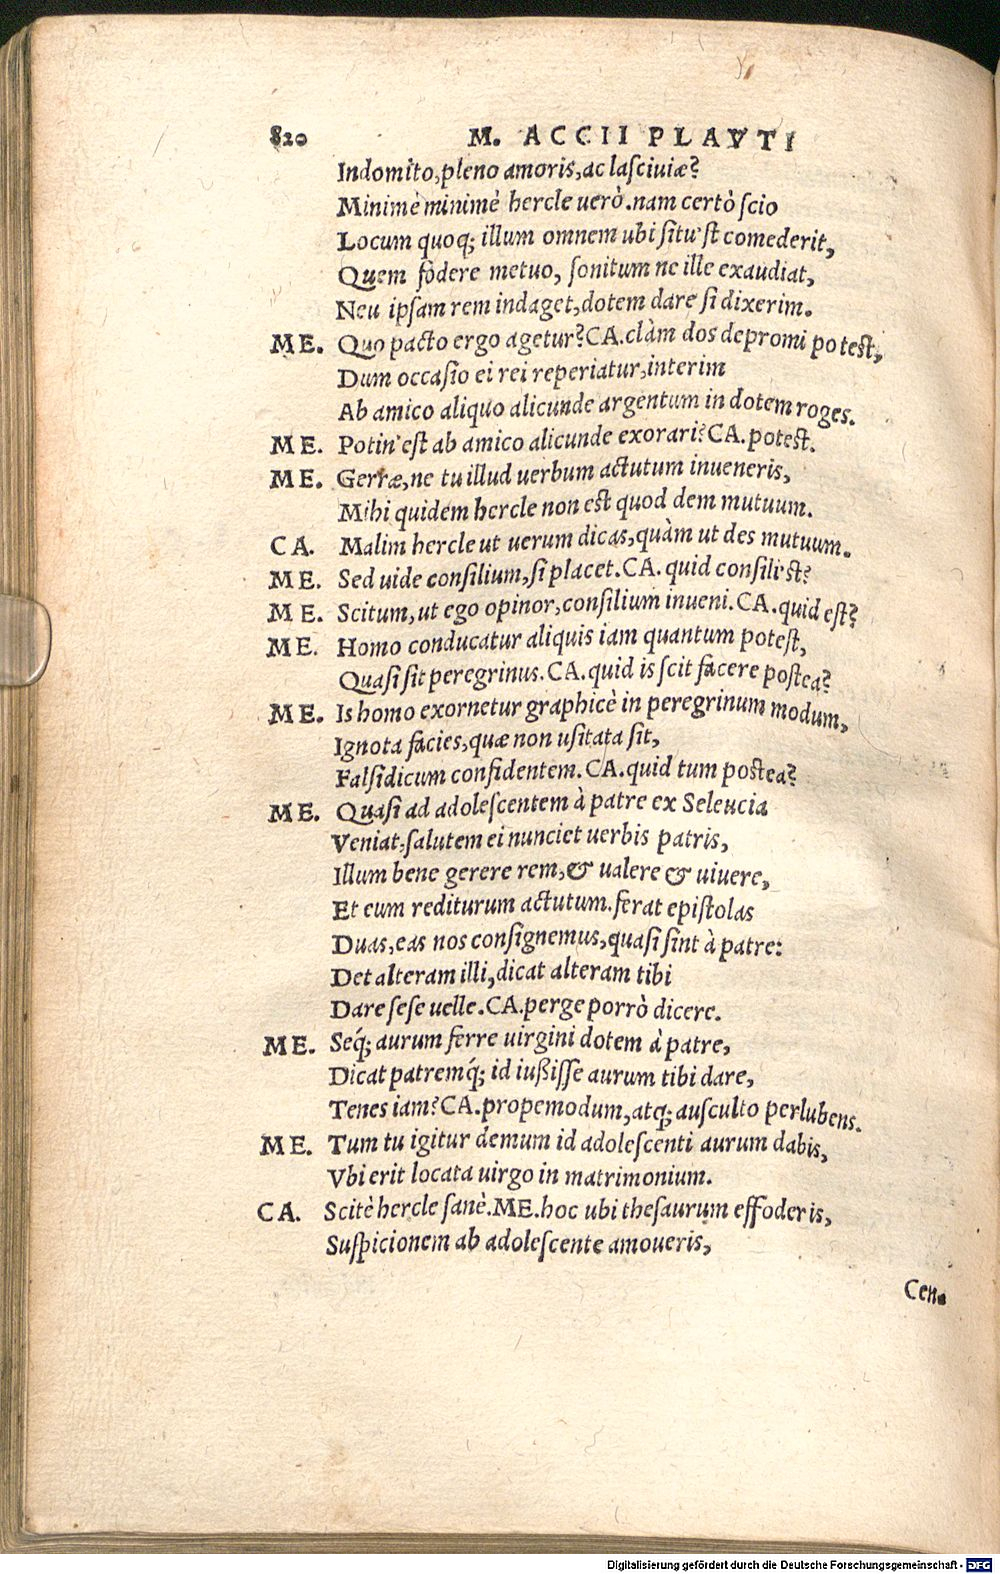 820 M. ACCII PLAVTI
Indomito, pleno amoris, ac laſciuiæ?
Minimè minimè hercle uerò. nam certò ſcio
Locum quoq; illum omnem ubi ſitu'ſt comederit,
Quem fòdere metuo, ſonitum ne ille exaudiat,
Neu ipſam rem indaget, dotem dare ſi dixerim.
ME. Quo pacto ergo agetur? CA. clàm dos depromi poteſt,
Dum occaſio ei rei reperiatur, interim
Ab amico aliquo alicunde argentum in dotem roges.
ME. Potin'eſt ab amico alicunde exorari? CA. poteſt.
ME. Gerræ, ne tu illud uerbum actutum inueneris,
Mihi quidem hercle non eſt quod dem mutuum.
CA. Malim hercle ut uerum dicas, quàm ut des mutuum.
ME. Sed uide conſilium, ſi placet. CA. quid conſili'ſt?
ME. Scitum, ut ego opinor, conſilium inueni. CA. quid eſt?
ME. Homo conducatur aliquis iam quantum poteſt,
Quaſi ſit peregrinus. CA. quid is ſcit facere poſtea?
ME. Is homo exornetur graphicè in peregrinum modum,
Ignota facies, quæ non uſitata ſit,
Falſidicum confidentem. CA. quid tum poſtea?
ME. Quaſi ad adoleſcentem à patre ex Seleucia
Veniat, ſalutem ei nunciet uerbis patris,
Illum bene gerere rem, & ualere & uiuere,
Et eum rediturum actutum. ferat epiſtolas
Duas, eas nos conſignemus, quaſi ſint à patre:
Det alteram illi, dicat alteram tibi
Dare ſeſe uelle. CA. perge porrò dicere.
ME. Seq́; aurum ferre uirgini dotem à patre,
Dicat patremq́; id iußiſſe aurum tibi dare,
Tenes iam? CA. propemodum, atq; auſculto perlubens.
ME. Tum tu igitur demum id adoleſcenti aurum dabis,
Vbi erit locata uirgo in matrimonium.
CA. Scitè hercle ſanè. ME. hoc ubi theſaurum effoderis,
Suſpicionem ab adoleſcente amoueris,
Cen.
Digitalisierung gefördert durch die Deutsche Forschungsgemeinschaft - DFG